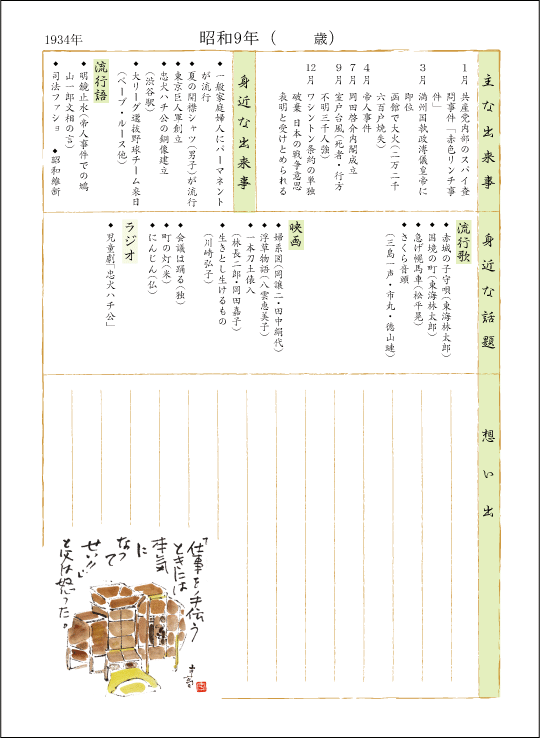 1934年
昭和9年（　　歳）
主な出来事
1月 共産党内部のスパイ査
問事件「赤色リンチ事
件」
3月 満州国執政溥儀皇帝に
即位
函館で大火（二万二千
六百戸焼失）
4月 帝人事件
7月 岡田啓介内閣成立
9月 室戸台風（死者・行方
不明三千人強）
12月 ワシントン条約の単独
破棄 日本の戦争意思
表明と受けとめられる
身近な出来事
◆一般家庭婦人にパーマネント
が流行
◆夏の開襟シャツ（男子）が流行
◆東京巨人軍創立
◆忠犬ハチ公の銅像建立
（渋谷駅）
◆大リーグ選抜野球チーム来日
（ベーブ・ルース他）
流行語
◆明鏡止水（帝人事件での鳩
山一郎文相の言）
◆司法ファッショ ◆昭和維新
身近な話題
流行歌
◆赤城の子守唄（東海林太郎）
◆国境の町（東海林太郎）
◆急げ幌馬車（松平晃）
◆さくら音頭
（三島一声・市丸・徳山璉）
映画
◆婦系図（岡譲二・田中絹代）
◆浮草物語（八雲恵美子）
◆一本刀土俵入
（林長二郎・岡田嘉子）
◆生きとし生けるもの
（川崎弘子）
◆会議は踊る（独）
◆町の灯（米）
◆にんじん（仏）
ラジオ
◆児童劇「忠犬ハチ公」
想い出
「仕事を手伝う
ときには
本気
に
なって
せい!!」
と父は怒った。